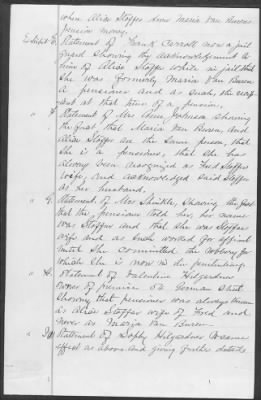 when Alice Stoffer drew Maria Van Buren
pension money.
Exhibit E. Statement of Frank Carroll now a jail
guard showing the acknowledgement to
him of Alice Stoffer while in jail, that
she was formerly Maria Van Buren
a pensioner and as such, she was
at that time of a pension.
" F. Statement of Mrs Annie Johnson showing
the fact that Maria Van Buren, and
Alice Stoffer are the same person, that
she is a pensioner, that she has
always been recognized as Fred Stoffer's
wife, and acknowledged said Stoffer
as her husband.
" G. Statement of Mrs Shinkle, showing the fact
that the pensioner told her, her name
was Stoffer and that she was Stoffer's
wife and as such worked for affiant
until she committed the robbery for
which she is now in the penitentiary
" H. Statement of Valentine Hilgardner
owner of premises on German Street
showing that pensioner was always known
as Alice Stoffer wife of Fred and
never as Maria Van Buren.
" I Statement of Sophy Hilgardner to same
effect as above and giving further details